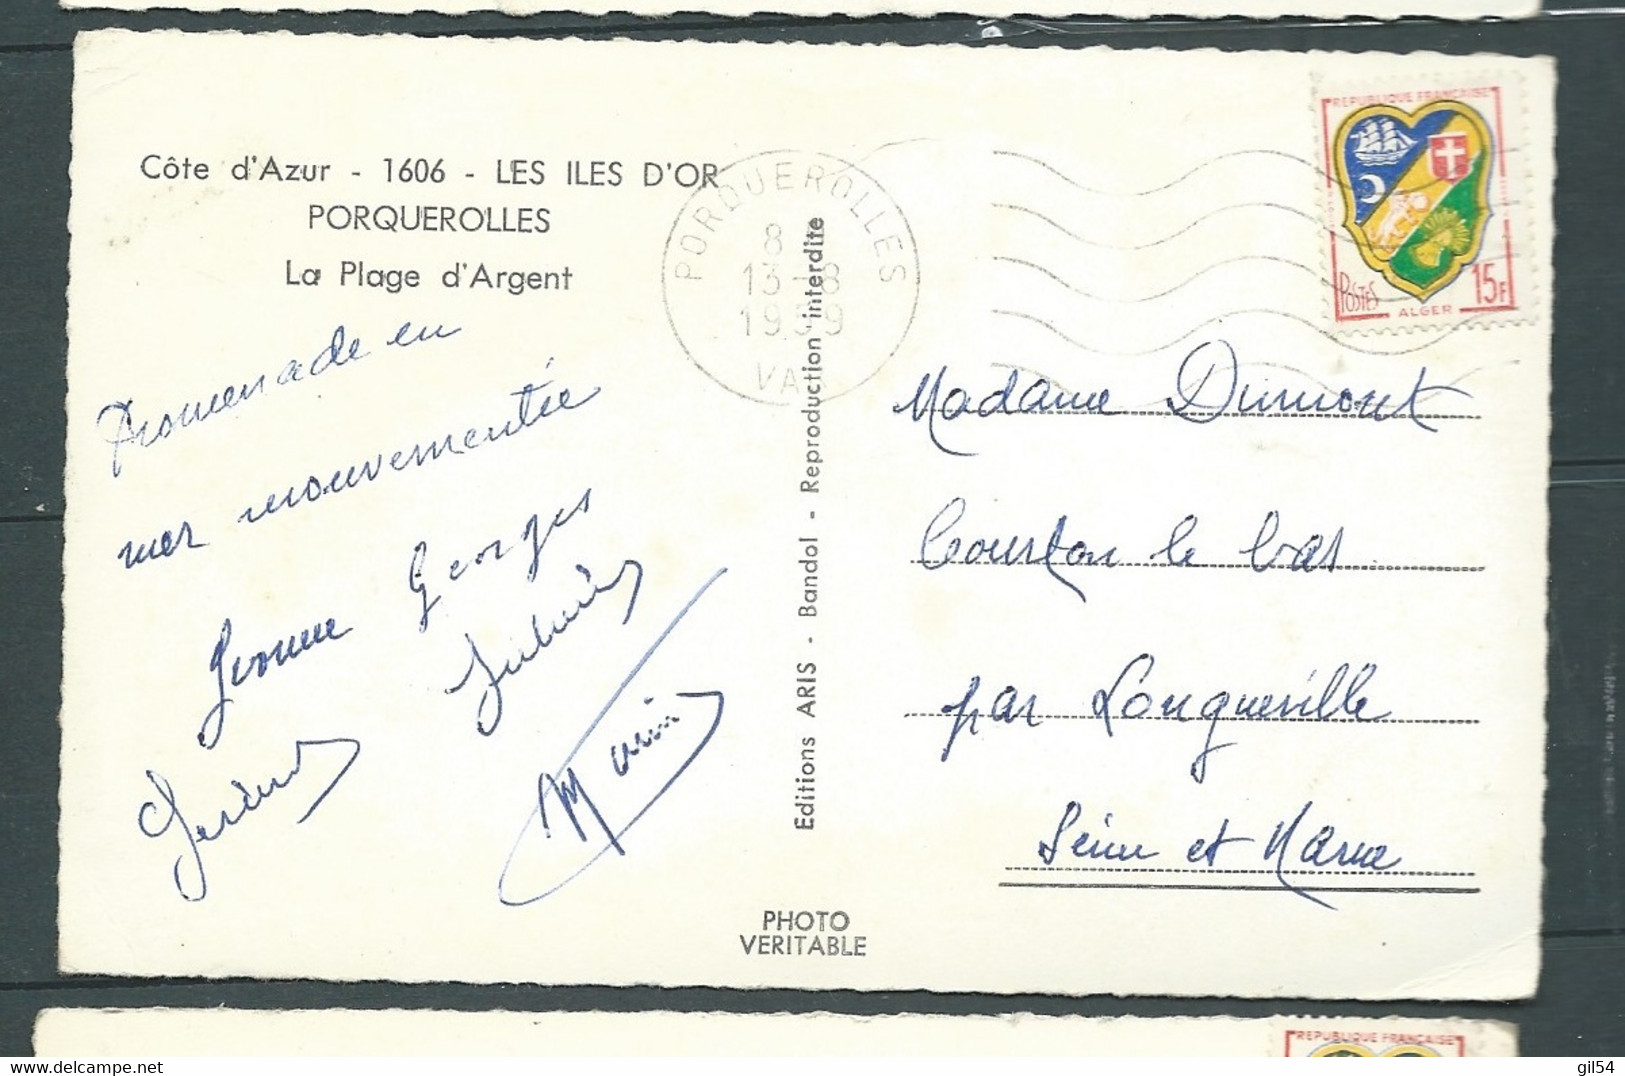 Côte d'Azur - 1606 - LES ILES D'OR
PORQUEROLLES
La Plage d'Argent
Promenade en
mer mouvementée
Yvonne Georges
PORQUEROLLES
8
13-8
1959
VAR
Editions ARIS - Bandol - Reproduction interdite
PHOTO
VERITABLE
REPUBLIQUE FRANÇAISE
POSTES
15F
ALGER
Madame Dumont
Courton le bas
par Longueville
Seine et Marne
REPUBLIQUE FRANÇAISE
gil54